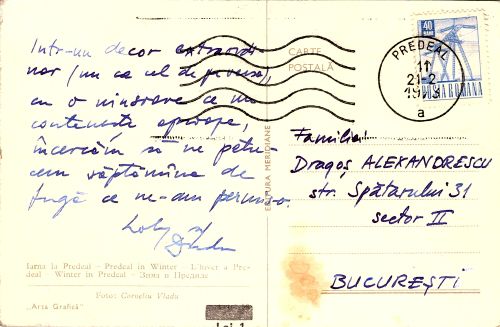 Într-un decor extraordi-
nar (nu ca cel de pe verso),
cu o ninsoare ce nu
contenește aproape,
încercăm să ne petre-
cem săptămîna de
fugă ce ne-am permis-o.
și
CARTE
POȘTALĂ
EDITURA MERIDIANE
40
BANI
POȘTA ROMANA
PREDEAL
11
21-2
a
Familiei
Dragoș ALEXANDRESCU
str. Spătarului 31
sector II
BUCUREȘTI
Iarna la Predeal - Predeal in Winter - L'hiver a Pre-
deal - Winter in Predeal - Зима в Предеале
Foto: Corneliu Vladu
„Arta Grafică"
Lei 1